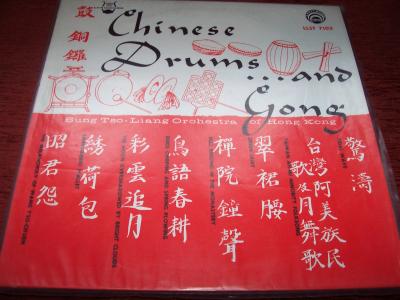 鼓銅鑼
LLST 7102
Chinese
Drums...and
Gong
Sung Tso-Liang Orchestra of Hong Kong
驚濤
台灣阿美族民
歌及月舞歌
翠裙腰
禪院鐘聲
鳥語春耕
彩雲追月
綉荷包
昭君怨